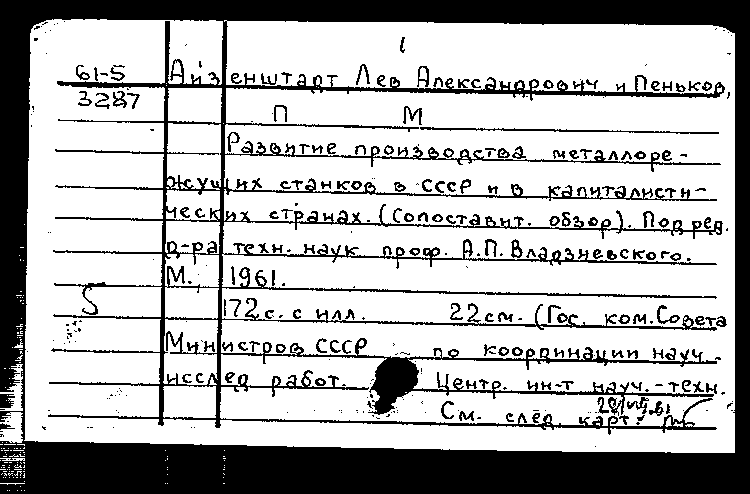 1
61-5 Айзенштарт, Лев Александрович и Пеньков,
3287
П М
Развитие производства металлоре-
жущих станков в СССР и в капиталисти-
ческих странах. (Сопоставит. обзор). Под ред.
д-ра техн. наук проф. А.П. Владзиевского.
М., 1961.
5 172 с. с илл. 22 см. (Гос. ком. Совета
Министров СССР по координации науч.-
исслед работ. Центр. ин-т науч.-техн.
См. след. карт.